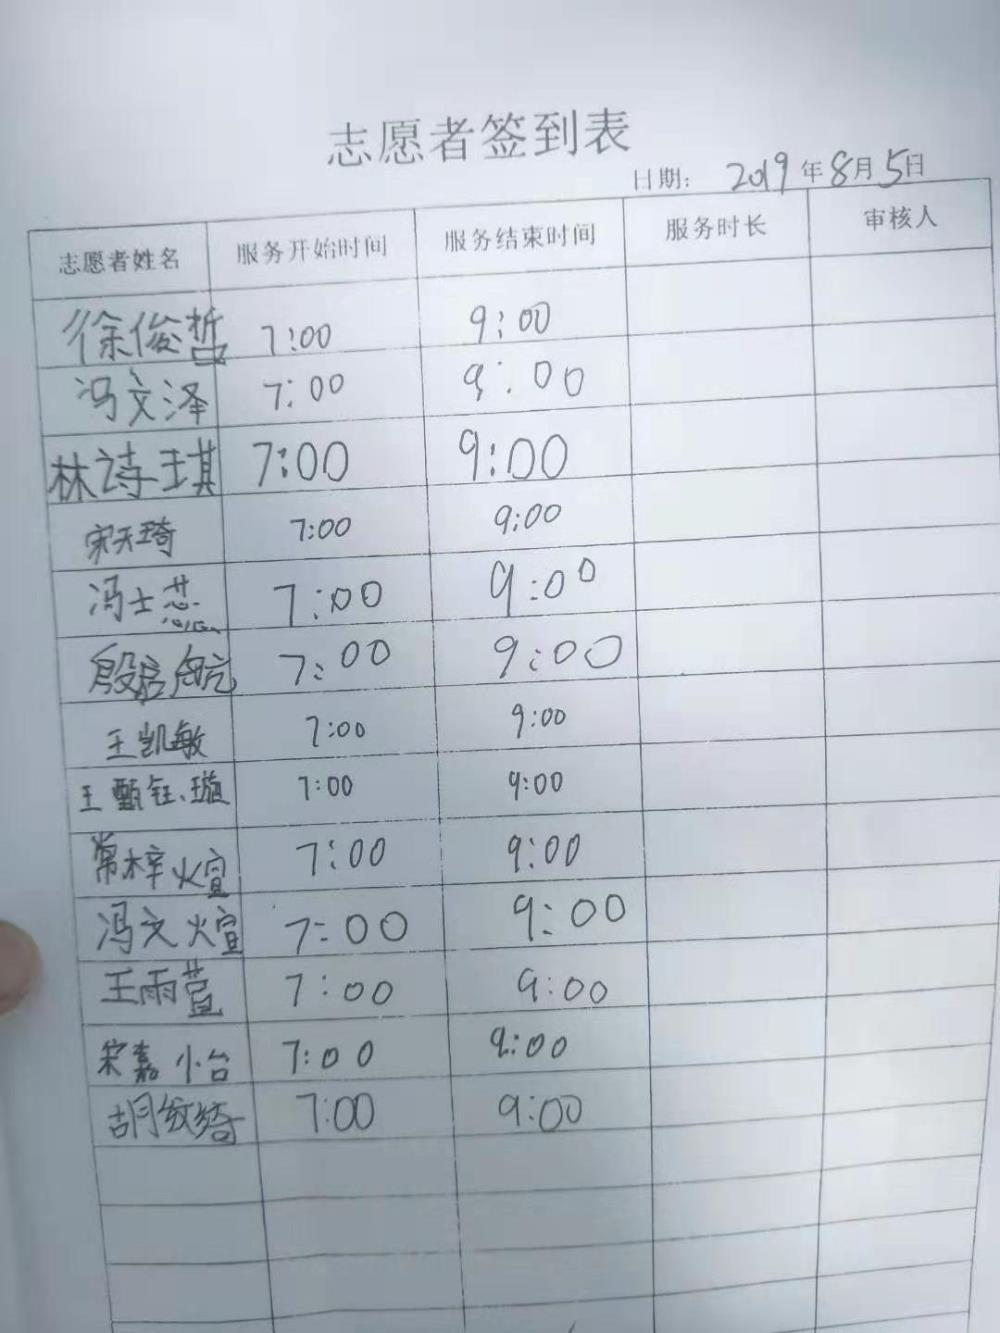 志愿者签到表
日期: 2019年8月5日
志愿者姓名 服务开始时间 服务结束时间 服务时长 审核人
徐俊哲 7:00 9:00
冯文泽 7:00 9:00
林诗琪 7:00 9:00
宋天琦 7:00 9:00
冯士蕊 7:00 9:00
殷启航 7:00 9:00
王凯敏 7:00 9:00
王甄钰璇 7:00 9:00
常梓煊 7:00 9:00
冯文煊 7:00 9:00
王雨萱 7:00 9:00
宋嘉怡 7:00 9:00
胡纹绮 7:00 9:00